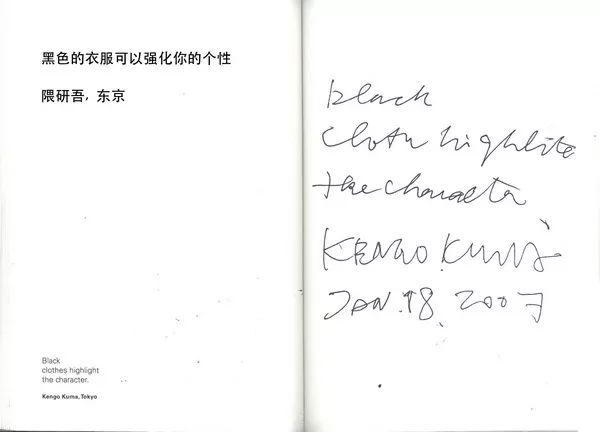 黑色的衣服可以强化你的个性
隈研吾, 东京
Black
clothes highlight
the character.
Kengo Kuma, Tokyo
black
cloth highlite
the character
KENGO KUMA
JAN. 18. 2007